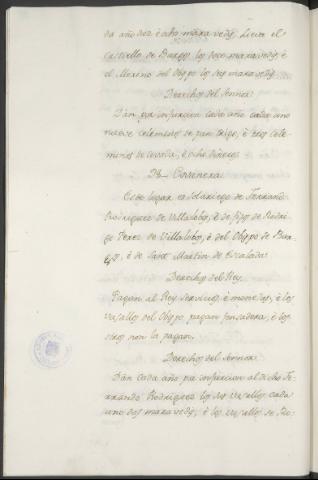 da año diez è ocho maravedis. Lieva el
Castiello de Burgos los doce maravedis, è
el Merino del Obispo los seis maravedis.
Derechos del Sennor
Dan por infurcion cada año cada uno
nueve celemines de pan trigo, è tres cele-
mines de cevada, è ocho dineros.
Este logar es Solariego de Ferrand
Rodriguez de Villalobos, è de fijos de Rodri-
go Perez de Villalobos, è del Obispo de Bur-
gos, è de Sant Martin de Escalada.
Derechos del Rey.
Pagan al Rey servicios, è monedas, è los
vasallos del Obispo pagan fonsadera, è los
otros non la pagan.
Derechos del Sennor.
Dan cada año por infurcion al dicho Fe-
rrando Rodriguez los sus vasallos cada
uno dos maravedis, è los vasallos de Ro-